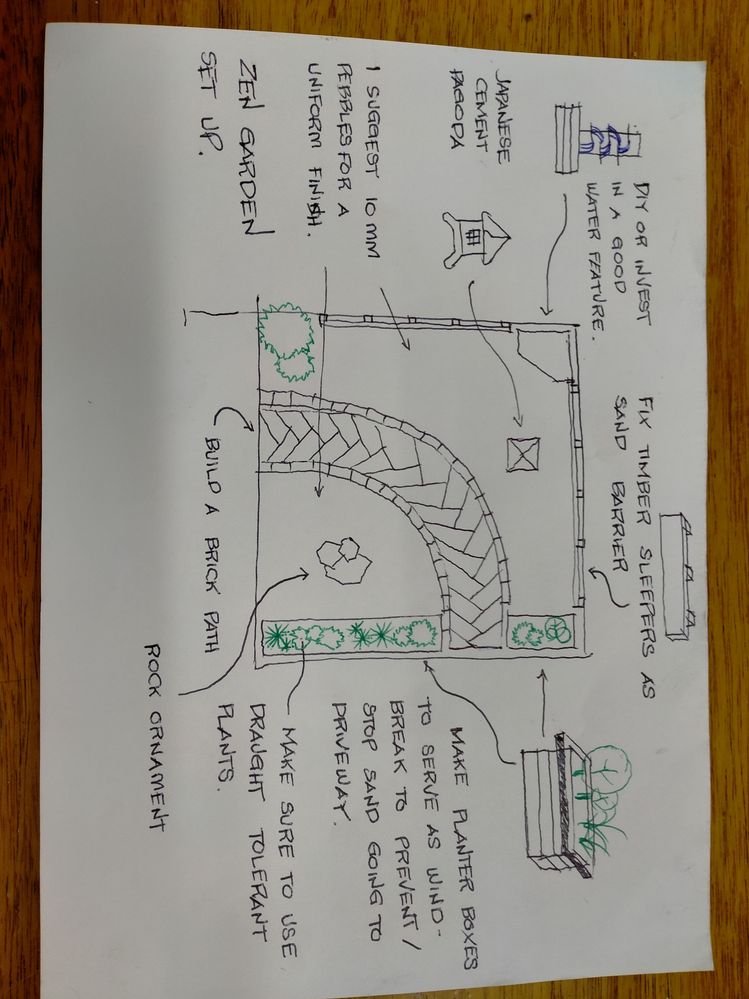 DIY OR INVEST
IN A GOOD
WATER FEATURE.
FIX TIMBER SLEEPERS AS
SAND BARRIER
JAPANESE
CEMENT
PAGODA
I SUGGEST 10 MM
PEBBLES FOR A
UNIFORM FINISH.
ZEN GARDEN
SET UP.
BUILD A BRICK PATH
ROCK ORNAMENT
MAKE PLANTER BOXES
TO SERVE AS WIND-
BREAK TO PREVENT /
STOP SAND GOING TO
DRIVEWAY.
MAKE SURE TO USE
DRAUGHT TOLERANT
PLANTS.